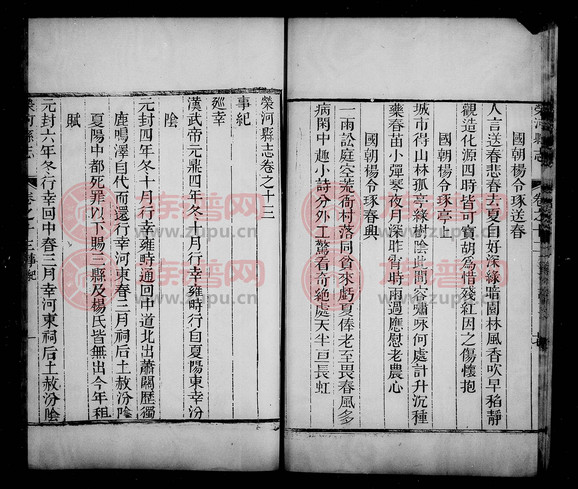 國朝楊令琢送春
人言送春悲春去夏自好深綠暗園林風香吹早稻靜
觀造化源四時皆可寶胡爲惜殘紅因之傷懷抱
國朝楊令琢亭上
城市得山林孤亭綠樹陰此間容嘯咏何處計升沉種
藥春苗小彈琴夜月深昨宵時雨過應慰老農心
國朝楊令琢春興
一兩訟庭空荒衙村落同貧來虧夏俸老至畏春風多
病閑中趣小詩分外工驚看奇絶處天半亘長虹
榮河縣志
榮河縣志卷之十三
事紀
廵幸
漢武帝元鼎四年冬十月行幸雍時行自夏陽東幸汾
陰
元封四年冬十月行幸雍時通回中道北出蕭關歷獨
鹿鳴澤自代而還行幸河東春三月祠后土赦汾陰
夏陽中都死罪以下賜三縣及楊氏皆無出今年租
賦
元封六年冬行幸回中春三月幸河東祠后土赦汾陰
榮河縣志
卷之十三事紀
一
族譜网
www.zupu.cn